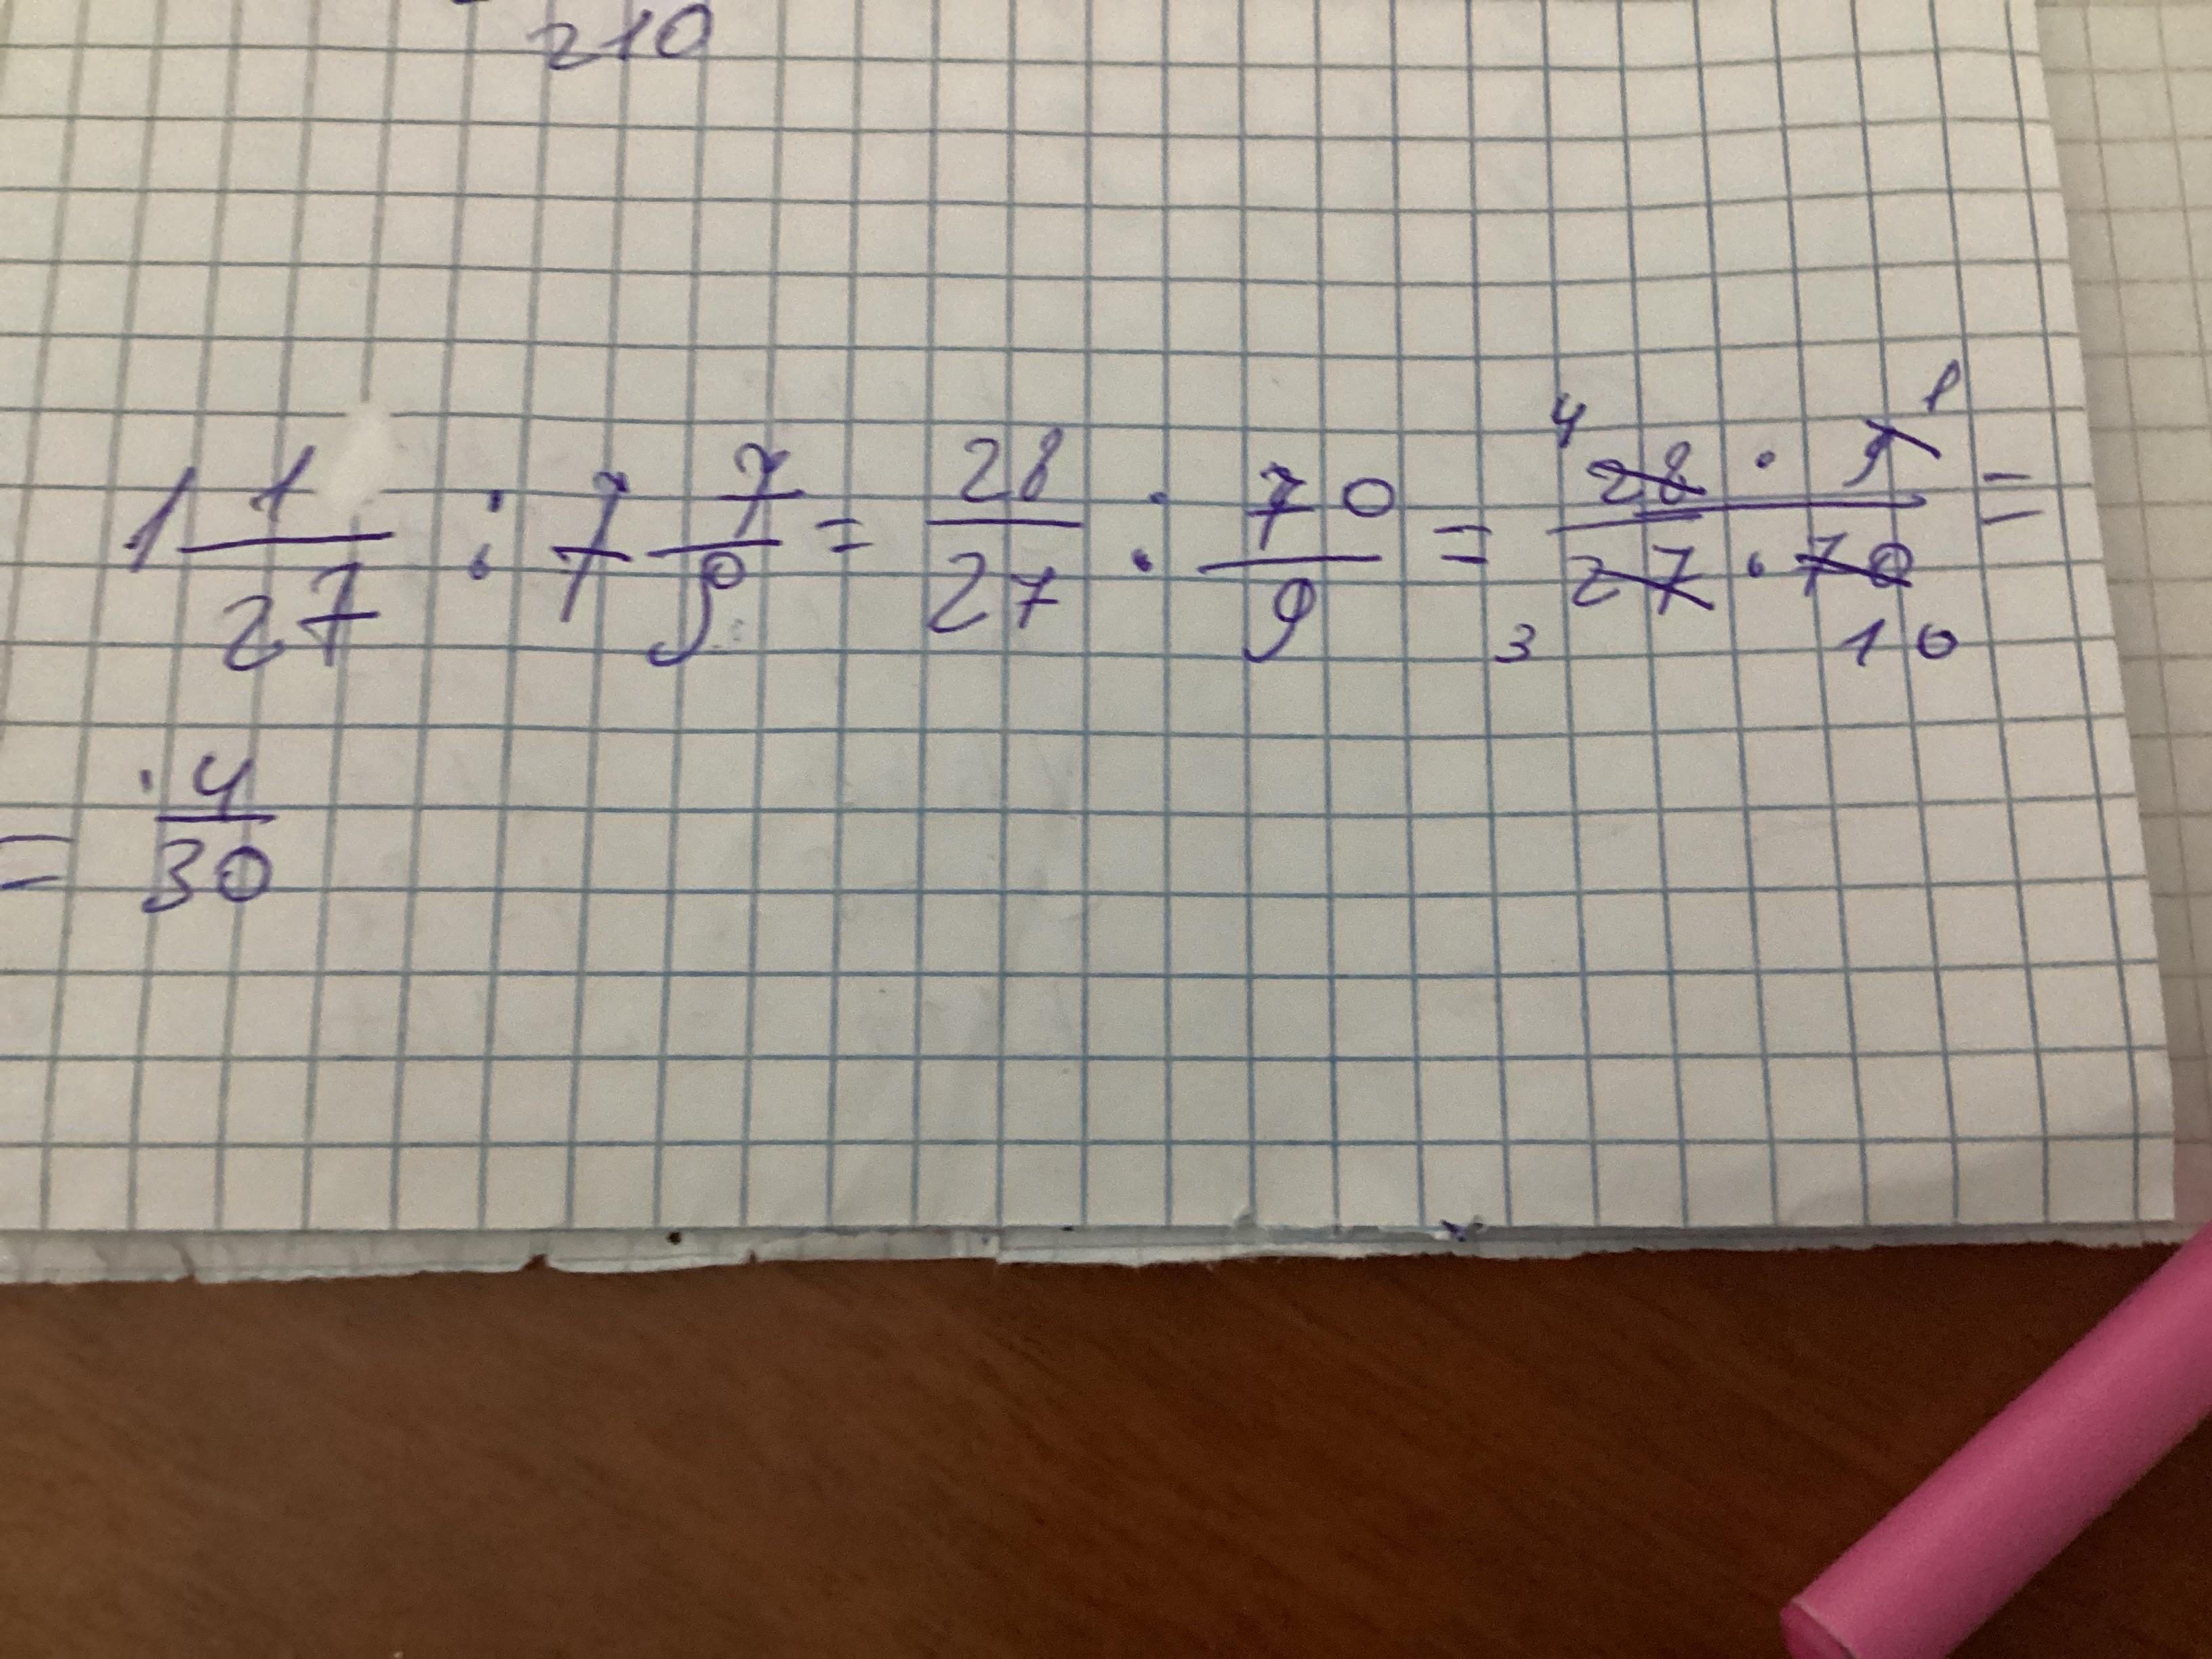 210
1 1/27 : 7 7/9 = 28/27 : 70/9 = 4 28 · 9 1 / 3 27 · 70 10 =
= 4/30